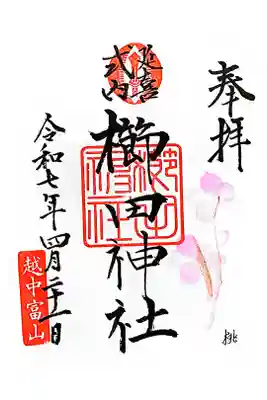 奉拝
延喜
式内
櫛田神社
櫛田神社
令和七年四月二十一日
越中富山
桃